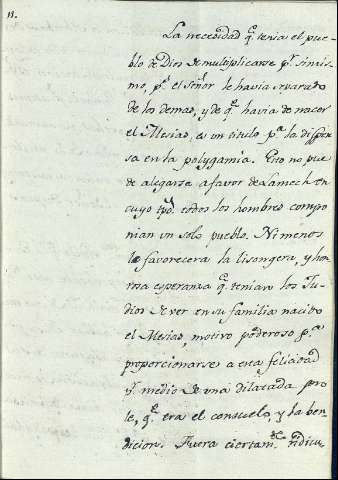 13.
La necesidad q.e tenia el pue-
blo de Dios de multiplicarse p.r simis-
mo, p.r el señor le havia separado
de los demas, y de q.e havia de nacer
el Mesias, es un titulo p.a la dispen-
sa en la polygamia. Esto no pue
de alegarse a favor de Lamech en
cuyo tpō. todos los hombres compo
nian un solo pueblo. Ni menos
le favorecera la lisongera, y hon
rosa esperanza q.e tenian los Ju-
dios de ver en su familia nacido
el Mesias, motivo poderoso p.a
proporcionarse a esta felicidad
p.r medio de una dilatada pro
le, q.e era el consuelo, y la ben-
dicion. Fuera ciertam.te ridicu-